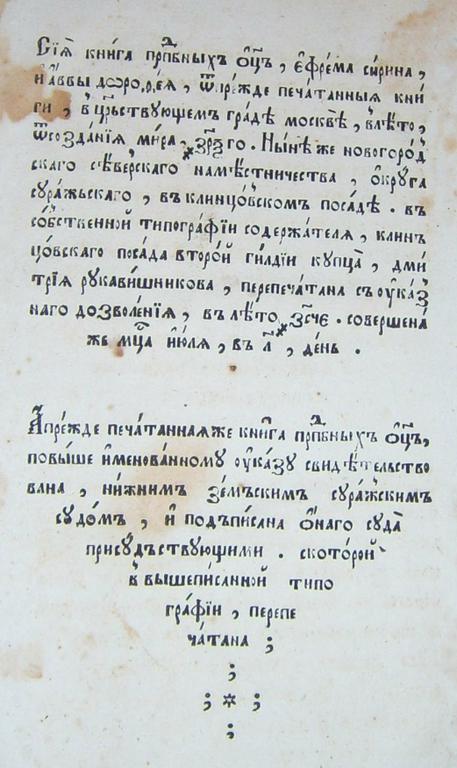 Сїѧ̀ кни́га прпⷣбныхъ ѻ҆ц҃ъ, є҆фре́ма си́рина,
и҆ а҆́ввы дѡроѳе́ѧ, ѿпре́жде печа́танныѧ кни́
ги, в̾црⷭ҇твующемъ гра́дѣ москвѣ̀, в̾лѣ́то,
ѿсозда́нїѧ ми́ра, ҂зр҃ѯго. Ны́нѣ же новогоро́д
скаго сѣ́верскаго намѣ́стничества, ѻ҆́круга
сура́жьскаго, въ клинцо́вскомъ поса́дѣ. въ
со́бственной типогра́фїи содержа́телѧ, клин
цо́вскаго поса́да второ́й ги́лдїи купца̀, дми́
трїѧ рукави́шникова, перепеча́тана съ ѹ҆ка́з
наго дозволе́нїѧ, въ лѣ́то ҂зс҃че. соверше́на
же мцⷭ҇а и҆ю́лѧ, въ л҃, де́нь.
А҆пре́жде печа́таннаѧже кни́га прпⷣбныхъ ѻ҆ц҃ъ,
повы́ше и҆менова́нному ѹ҆ка́зу свидѣ́тельство
вана, ни́жнимъ зе́мъскимъ сура́жскимъ
судо́мъ, и҆ подъпи́сана ѻ҆́наго суда̀
прису́дъствующими. с кото́рой
в̾ вышепи́санной типо
гра́фїи, перепе
ча́тана ;
;
; * ;
;